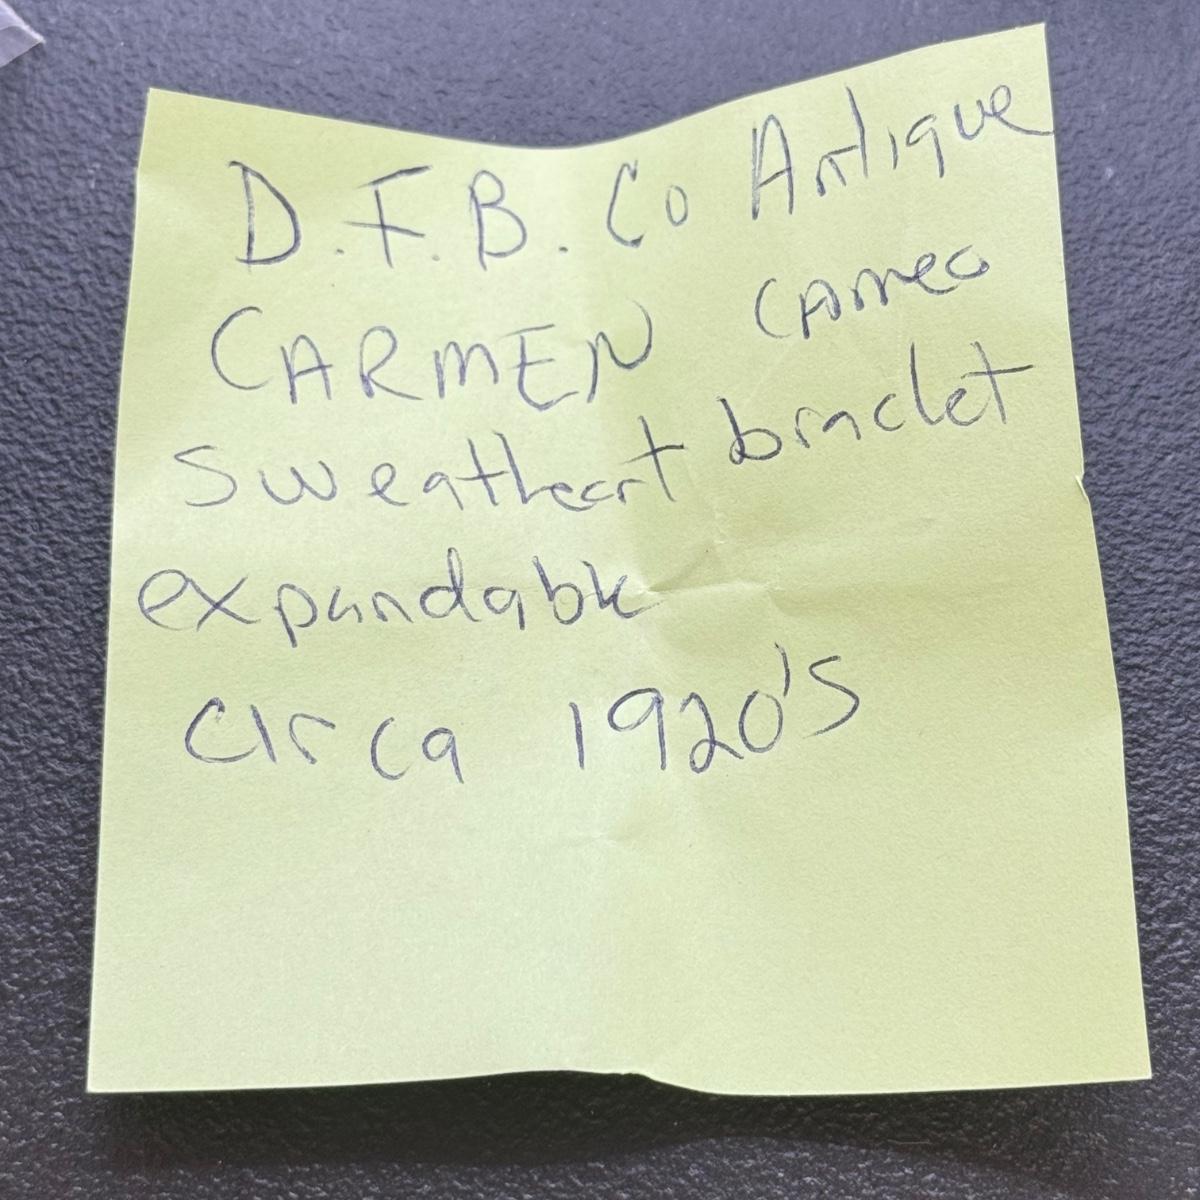 D.F.B. Co Antique
CARMEN Cameo
Sweatheart braclet
expandable
circa 1920's